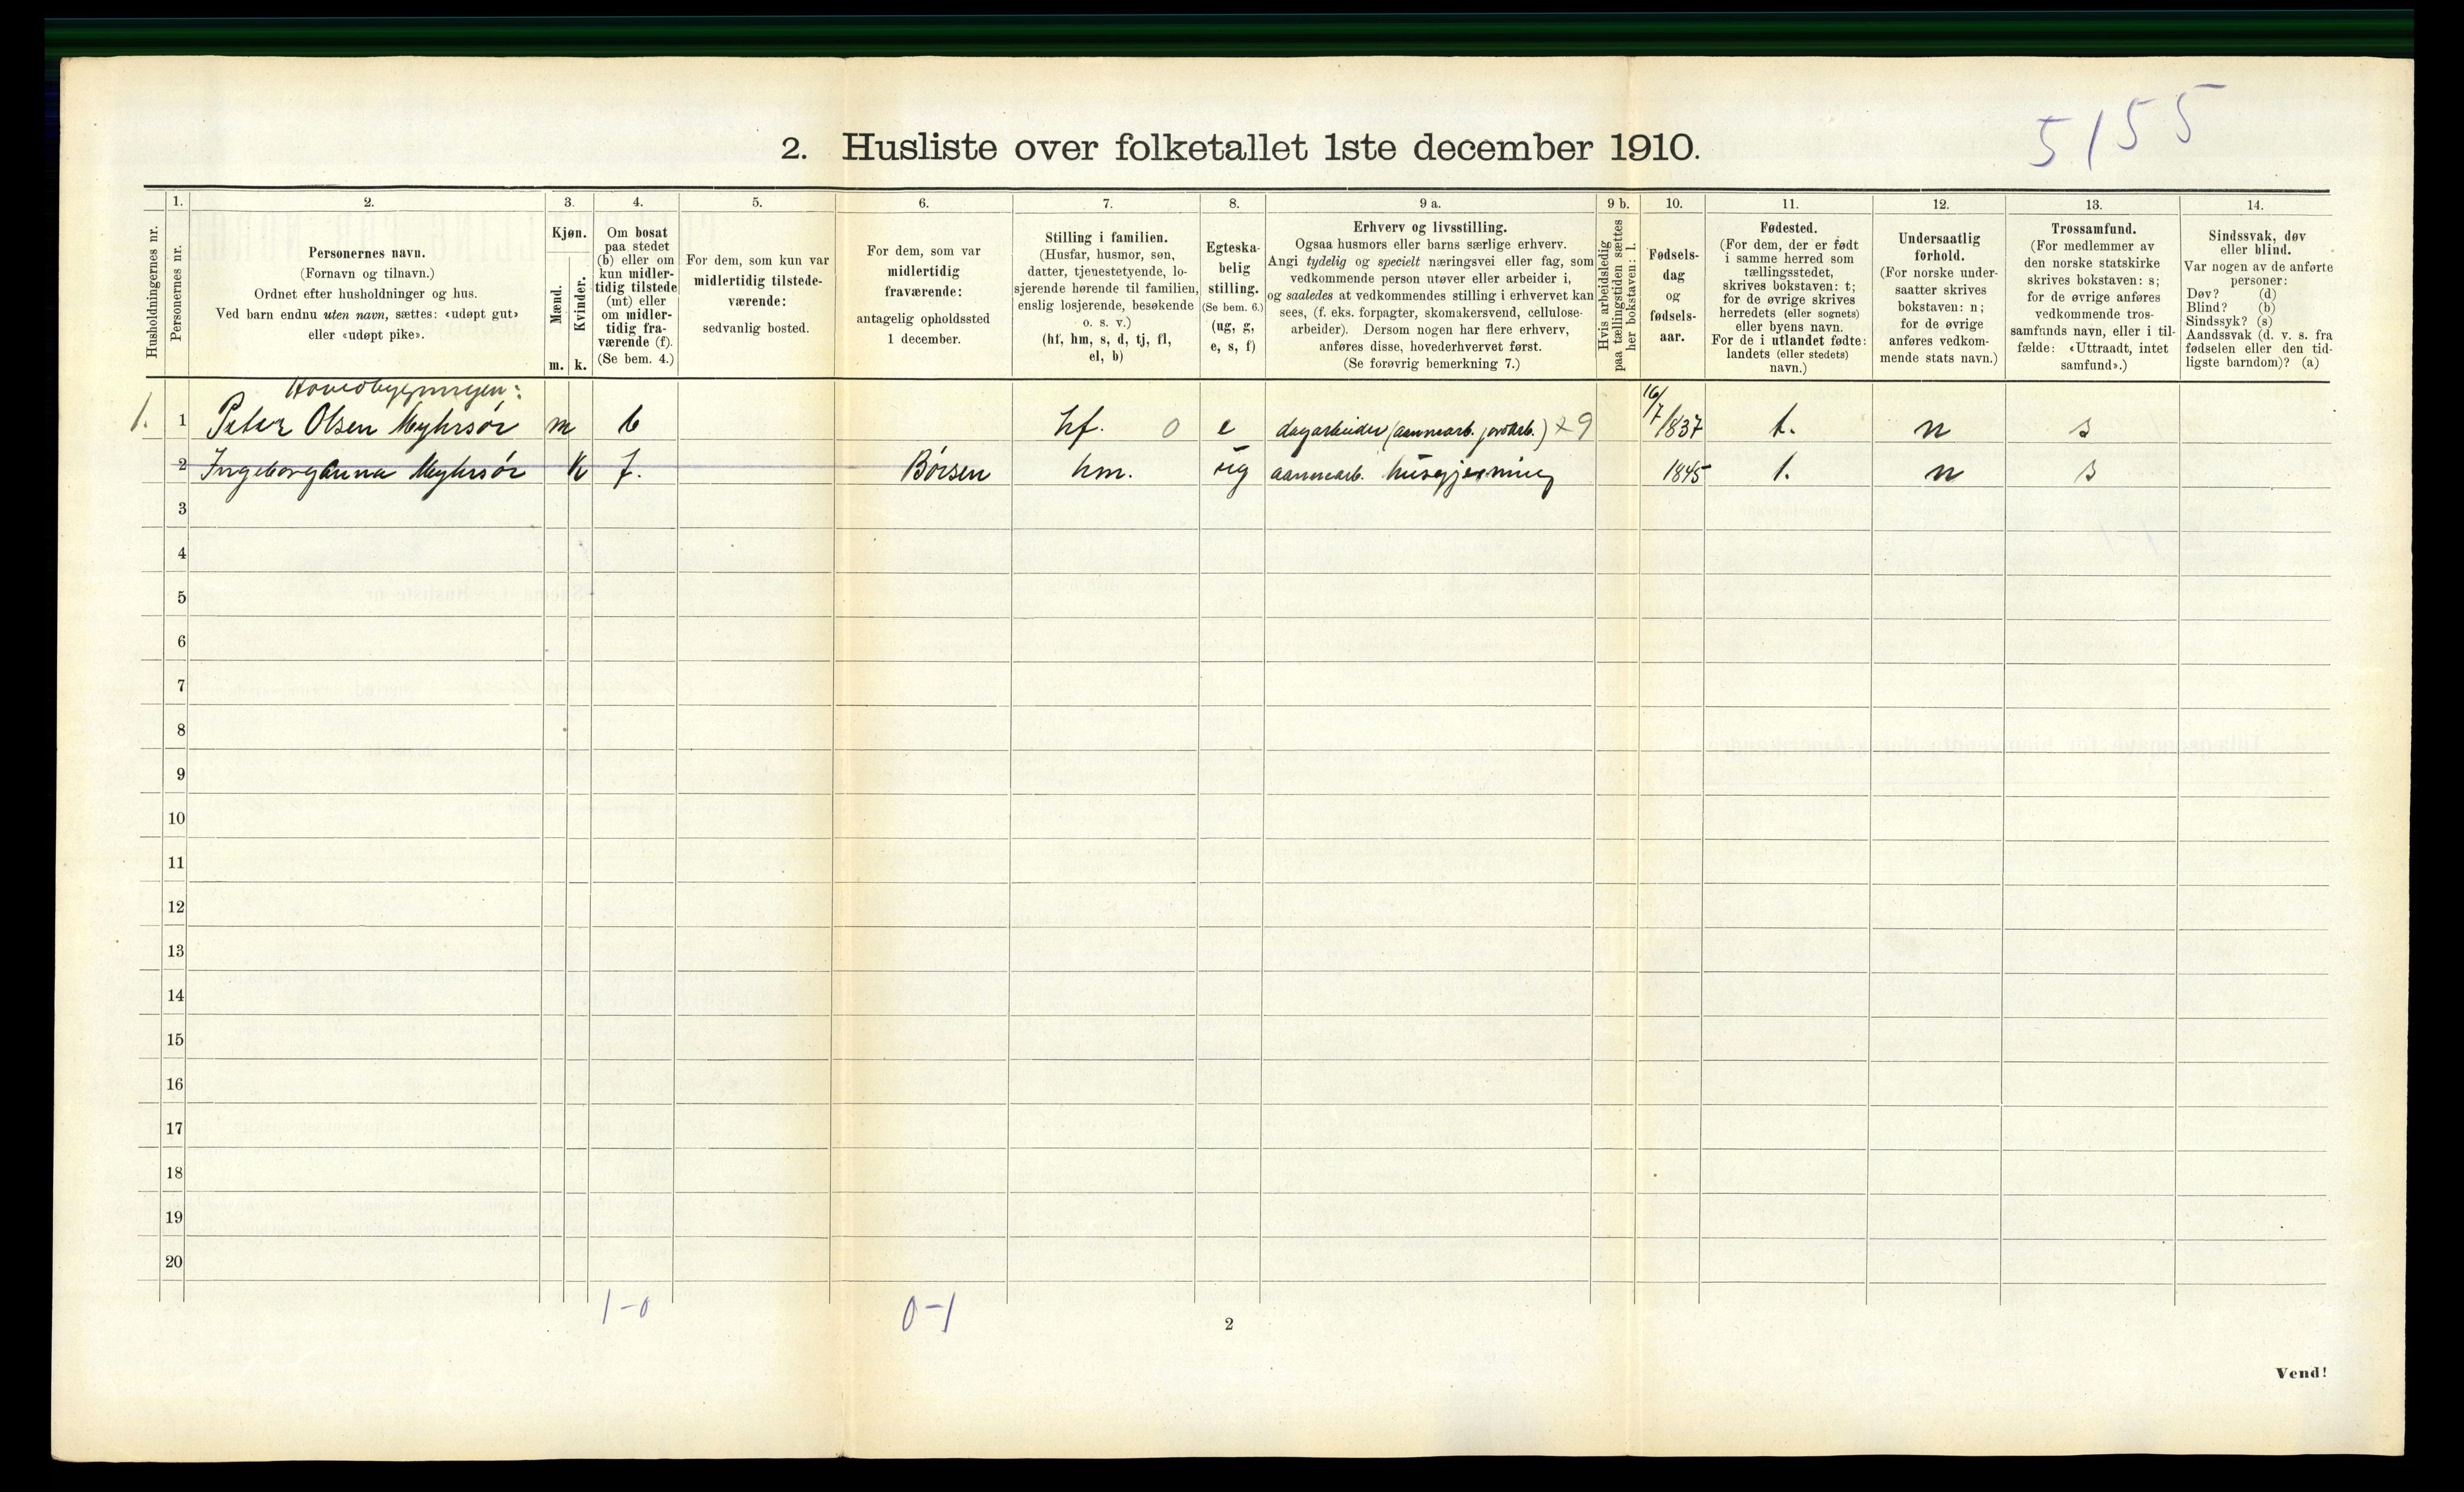 5155
2. Husliste over folketallet 1ste december 1910.
Husholdningernes nr.
1.
Personernes nr.
2.
Personernes navn.
(Fornavn og tilnavn.)
Ordnet efter husholdninger og hus.
Ved barn endnu uten navn, sættes: «udøpt gut»
eller «udøpt pike».
3.
Kjøn.
Mænd.
Kvinder.
m. k.
4.
Om bosat
paa stedet
(b) eller om
kun midler-
tidig tilstede
(mt) eller
om midler-
tidig fra-
værende (f).
(Se bem. 4.)
5.
For dem, som kun var
midlertidig tilstede-
værende:
sedvanlig bosted.
6.
For dem, som var
midlertidig
fraværende:
antagelig opholdssted
1 december.
7.
Stilling i familien.
(Husfar, husmor, søn,
datter, tjenestetyende, lo-
sjerende hørende til familien,
enslig losjerende, besøkende
o. s. v.)
(hf, hm, s, d, tj, fl,
el, b)
8.
Egteska-
belig
stilling.
(Se bem. 6.)
(ug, g,
e, s, f)
9 a.
Erhverv og livsstilling.
Ogsaa husmors eller barns særlige erhverv.
Angi tydelig og specielt næringsvei eller fag, som
vedkommende person utøver eller arbeider i,
og saaledes at vedkommendes stilling i erhvervet kan
sees, (f. eks. forpagter, skomakersvend, cellulose-
arbeider). Dersom nogen har flere erhverv,
anføres disse, hovederhvervet først.
(Se forøvrig bemerkning 7.)
9 b.
Hvis arbeidsledig
paa tællingstiden sættes
her bokstaven: l.
10.
Fødsels-
dag
og
fødsels-
aar.
11.
Fødested.
(For dem, der er født
i samme herred som
tællingsstedet,
skrives bokstaven: t;
for de øvrige skrives
herredets (eller sognets)
eller byens navn.
For de i utlandet fødte:
landets (eller stedets)
navn.)
12.
Undersaatlig
forhold.
(For norske under-
saatter skrives
bokstaven: n;
for de øvrige
anføres vedkom-
mende stats navn.)
13.
Trossamfund.
(For medlemmer av
den norske statskirke
skrives bokstaven: s;
for de øvrige anføres
vedkommende tros-
samfunds navn, eller i til-
fælde: «Uttraadt, intet
samfund».)
14.
Sindssvak, døv
eller blind.
Var nogen av de anførte
personer:
Døv? (d)
Blind? (b)
Sindssyk? (s)
Aandssvak (d. v. s. fra
fødselen eller den tid-
ligste barndom)? (a)
Hovedbygningen:
1. 1 Peter Olsen Myhrsør m b hf. 0 e dagarbeider (aarmearb. jordarb.) x9 16/7 1837 t. n s
2 Ingeborg Anna Myhrsør k f. Børsen hm. ug husgjerning 1845 t. n s
3
4
5
6
7
8
9
10
11
12
13
14
15
16
17
18
19
20
1-0
0-1
2
Vend!